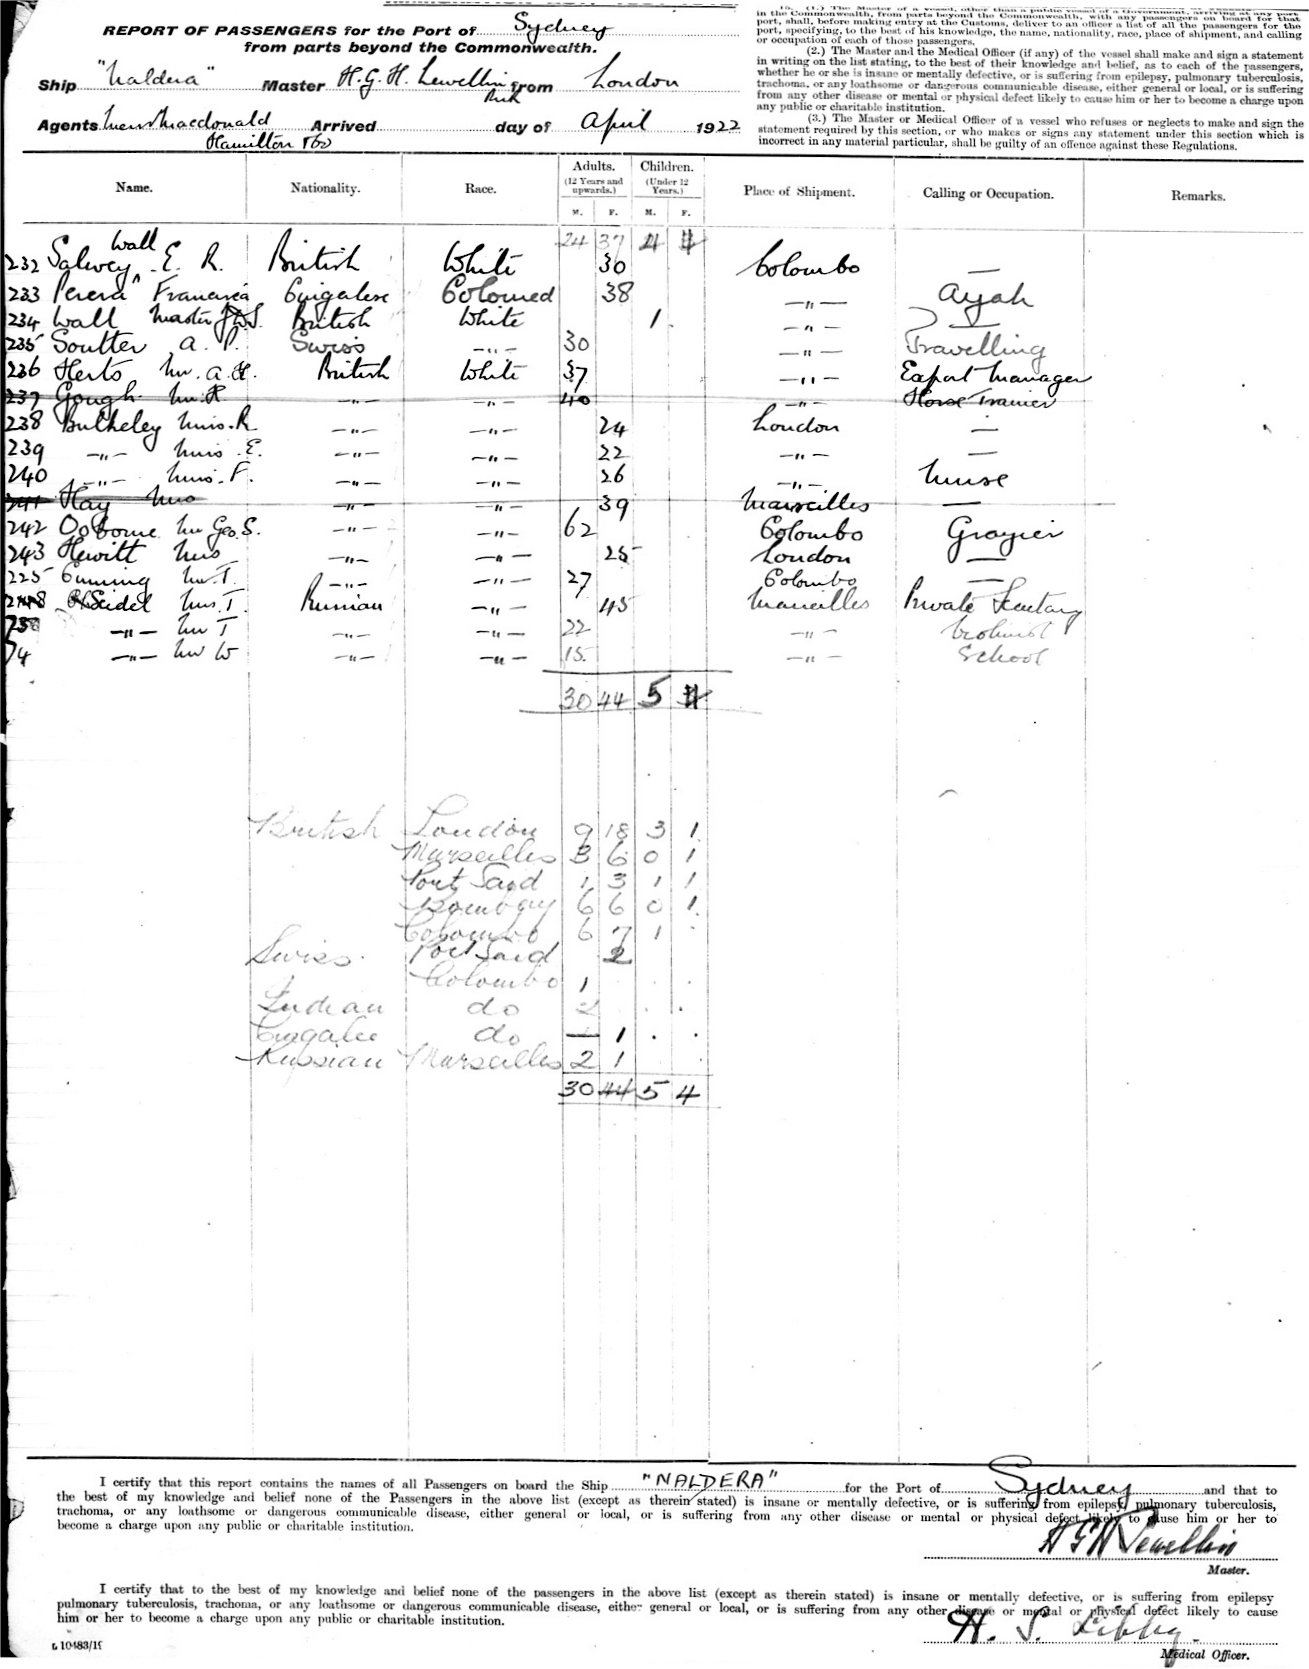 REPORT OF PASSENGERS for the Port of Sydney
from parts beyond the Commonwealth.
Ship "Naldera" Master H. G. H. Lewellin from London
RNR
Agents Messrs Macdonald Arrived day of April 1922
Hamilton & Co
in the Commonwealth, from parts beyond the Commonwealth, with any passengers on board for that
port, shall, before making entry at the Customs, deliver to an officer a list of all the passengers for the
port, specifying, to the best of his knowledge, the name, nationality, race, place of shipment, and calling
or occupation of each of those passengers.
(2.) The Master and the Medical Officer (if any) of the vessel shall make and sign a statement
in writing on the list stating, to the best of their knowledge and belief, as to each of the passengers,
whether he or she is insane or mentally defective, or is suffering from epilepsy, pulmonary tuberculosis,
trachoma, or any loathsome or dangerous communicable disease, either general or local, or is suffering
from any other disease or mental or physical defect likely to cause him or her to become a charge upon
any public or charitable institution.
(3.) The Master or Medical Officer of a vessel who refuses or neglects to make and sign the
statement required by this section, or who makes or signs any statement under this section which is
incorrect in any material particular, shall be guilty of an offence against these Regulations.
Name. Nationality. Race. Adults. (12 Years and upwards.) Children. (Under 12 Years.) Place of Shipment. Calling or Occupation. Remarks.
M. F. M. F.
24 37 4 4
Wall
232 Salwey E. R. British White 30 Colombo —
233 Perera Francisca Cingalese Coloured 38 —"— Ayah
234 Wall Master British White 1 —"— —
235 Soutter A. P. Swiss —"— 30 —"— Travelling
236 Herts Mr. A. H. British White 37 —"— Export Manager
237 Gough Mr. R —"— —"— 40 —"— Horse Trainer
238 Bulkeley Miss. R —"— —"— 24 London —
239 —"— Miss. E. —"— —"— 22 —"— —
240 —"— Miss. F. —"— —"— 26 —"— Nurse
241 Hay Miss —"— —"— 39 Marseilles —
242 Osborne Mr Geo. S. —"— —"— 62 Colombo Grazier
243 Hewitt Mrs —"— —"— 25 London —
225 Cuming Mr. T. —"— —"— 27 Colombo —
Seidel Mrs. T. Russian —"— 45 Marseilles Private Secretary
—"— Mr T —"— —"— 22 —"— Violinist
74 —"— Mr W —"— —"— 15 —"— School
30 44 5 4
British London 9 18 3 1
Marseilles 3 6 0 1
Port Said 1 3 1 1
Bombay 6 6 0 1
Colombo 6 7 1
Swiss Port Said 2
Colombo 1
Indian do 2
Cingalee do — 1
Russian Marseilles 2 1
30 44 5 4
I certify that this report contains the names of all Passengers on board the Ship "NALDERA" for the Port of Sydney and that to
the best of my knowledge and belief none of the Passengers in the above list (except as therein stated) is insane or mentally defective, or is suffering from epilepsy, pulmonary tuberculosis,
trachoma, or any loathsome or dangerous communicable disease, either general or local, or is suffering from any other disease or mental or physical defect likely to cause him or her to
become a charge upon any public or charitable institution.
H G H Lewellin
Master.
I certify that to the best of my knowledge and belief none of the passengers in the above list (except as therein stated) is insane or mentally defective, or is suffering from epilepsy
pulmonary tuberculosis, trachoma, or any loathsome or dangerous communicable disease, either general or local, or is suffering from any other disease or mental or physical defect likely to cause
him or her to become a charge upon any public or charitable institution.
H. S. Libby.
L 10483/19 Medical Officer.